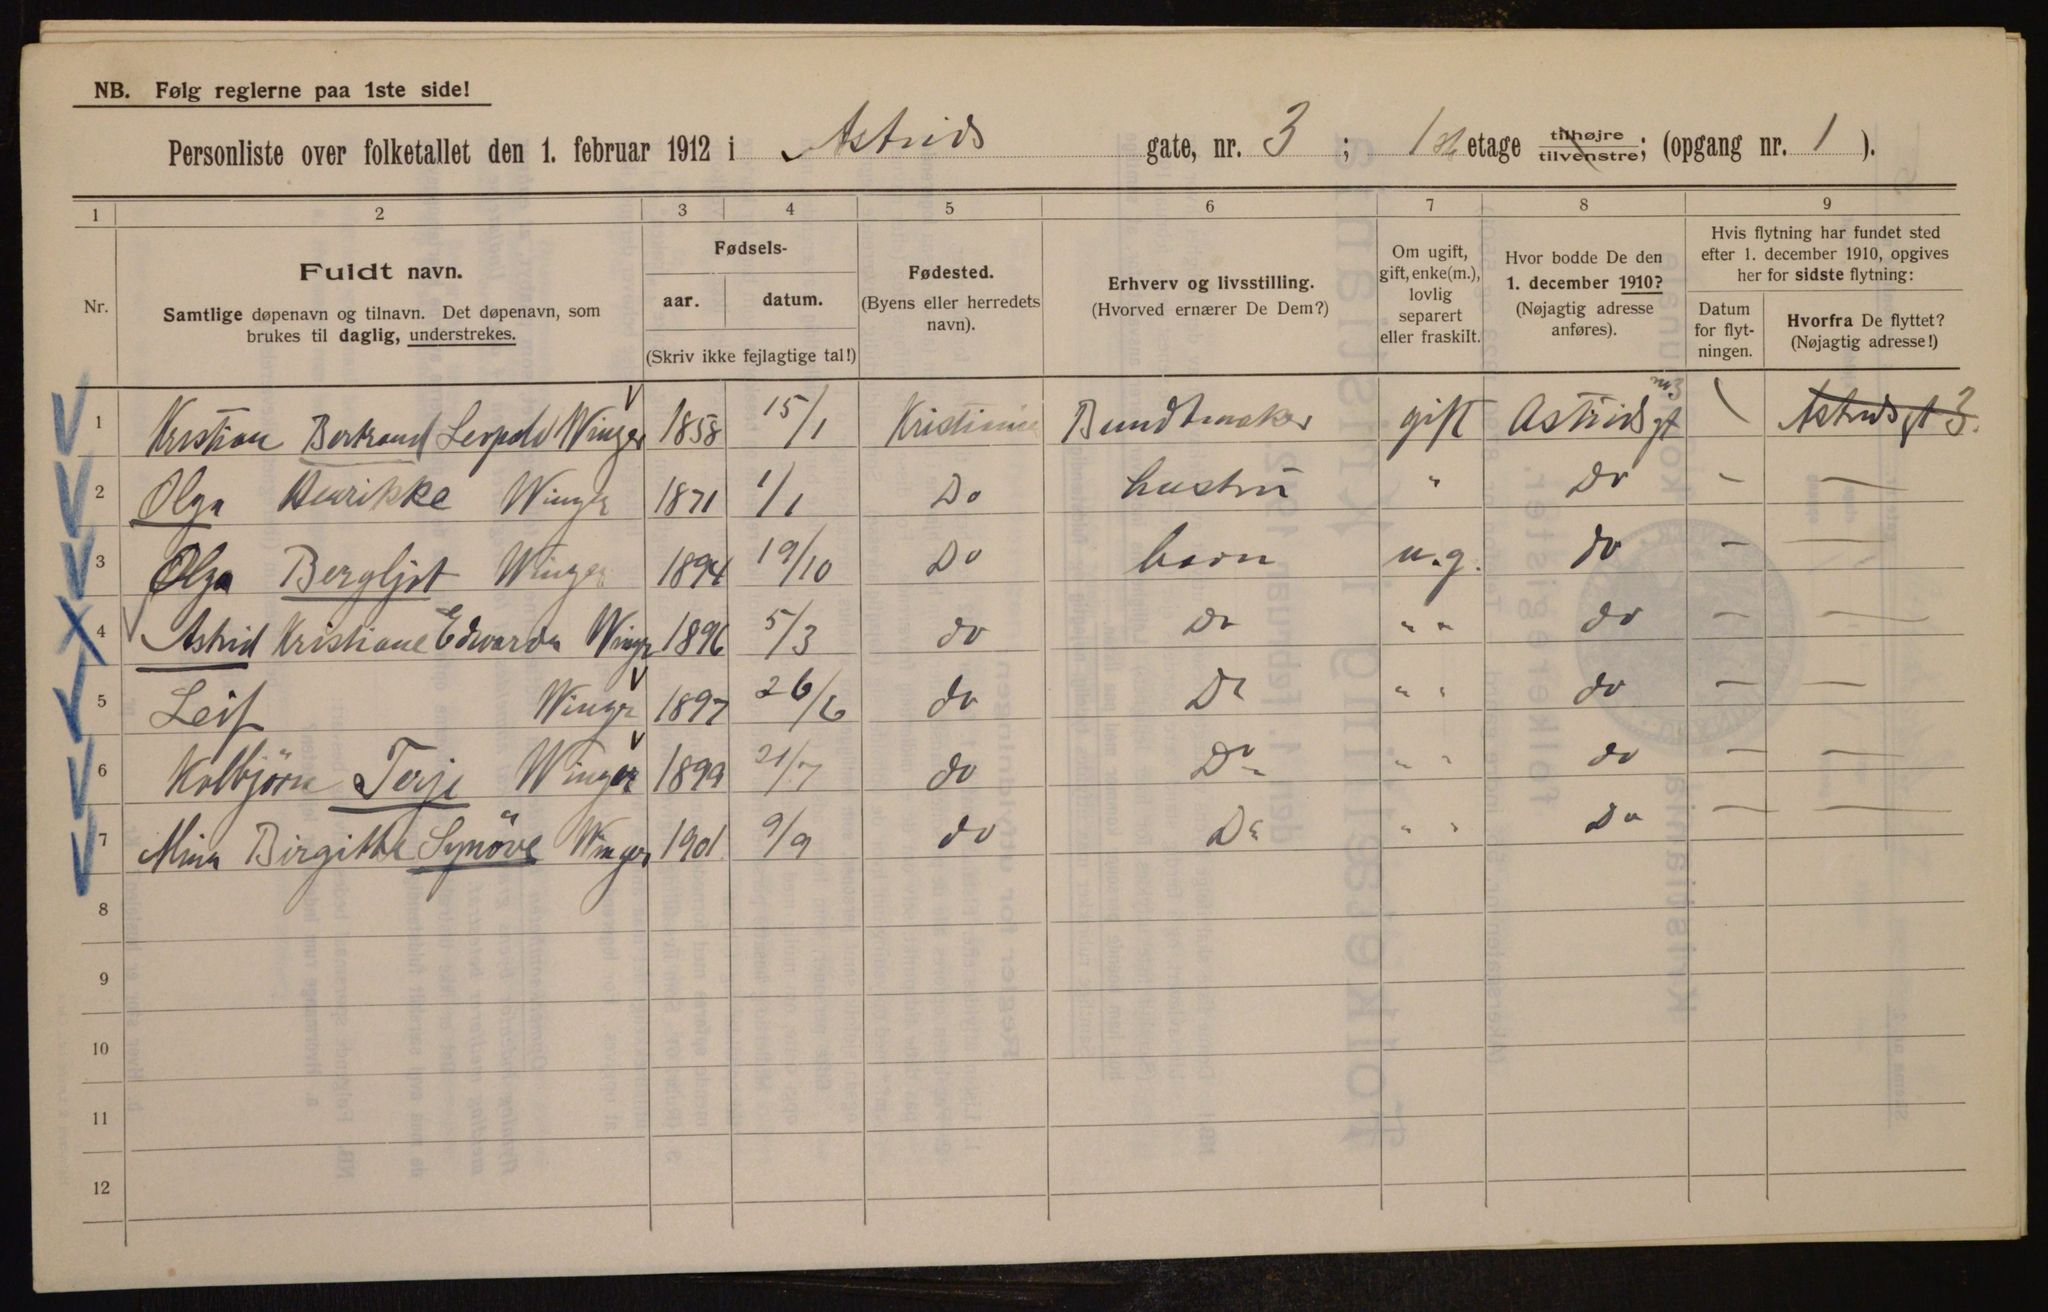 NB. Følg reglerne paa 1ste side!
Personliste over folketallet den 1. februar 1912 i Astrids gate, nr. 3 ; 1ste etage tilhøjre tilvenstre; (opgang nr. 1 ).
1 2 3 4 5 6 7 8 9
Nr.
Fuldt navn.
Samtlige døpenavn og tilnavn. Det døpenavn, som
brukes til daglig, understrekes.
Fødsels-
aar. datum.
(Skriv ikke fejlagtige tal!)
Fødested.
(Byens eller herredets
navn).
Erhverv og livsstilling.
(Hvorved ernærer De Dem?)
Om ugift,
gift, enke(m.),
lovlig
separert
eller fraskilt.
Hvor bodde De den
1. december 1910?
(Nøjagtig adresse
anføres).
Hvis flytning har fundet sted
efter 1. december 1910, opgives
her for sidste flytning:
Datum
for flyt-
ningen.
Hvorfra De flyttet?
(Nøjagtig adresse!)
1 Kristian Bertrand Leopold Winger 1858 15/1 Kristiania Bundtmaker gift Astrids gt nr. 3 Astrids gt 3.
2 Olga Henrikke Winger 1871 1/1 Do hustru " Do – —
3 Olga Bergljot Winger 1894 19/10 Do barn u.g. do – —
4 Astrid Kristiane Edvarda Winger 1896 5/3 do Do " " do – —
5 Leif Winger 1897 26/6 do Do " " do – —
6 Kolbjørn Terje Winger 1899 21/7 do Do " " do – —
7 Mina Birgitte Synöve Winger 1901 9/9 do Do " " Do – —
8
9
10
11
12